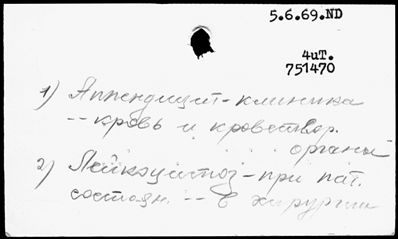 5.6.69.ND
4иТ.
751470
1) Аппендицит-клиника
-- кровь и кроветвор.
органы
2) Лейкоцитоз - при пат.
состоян. -- в хирургии